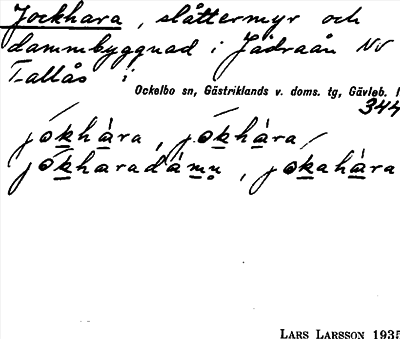 Jockhara, slåttermyr och
dammbyggnad i Jädraån NV
Tallås i
Ockelbo sn, Gästriklands v. doms. tg, Gävleb. l
344
jókhàra, jókhàra
jókharadámn, jókahàra
LARS LARSSON 1935